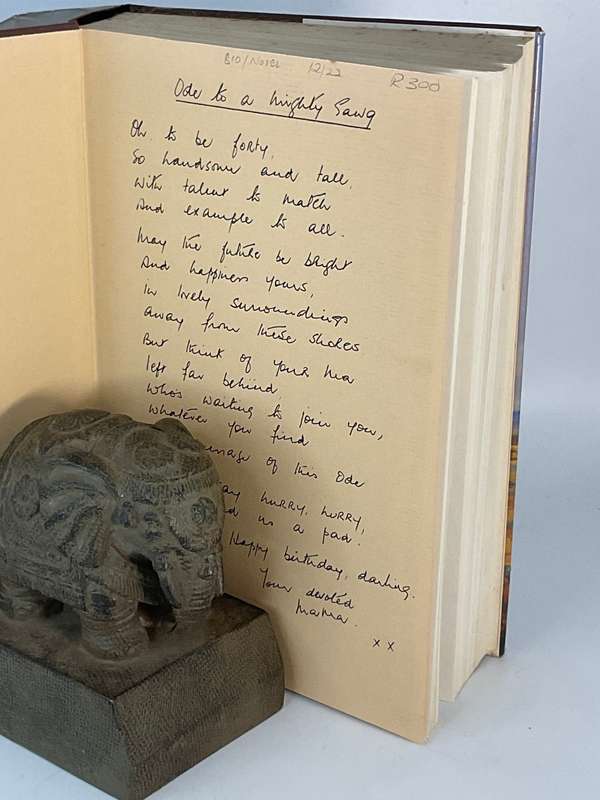 BIO/NOVEL 12/22 R300
Ode to a mighty
Oh to be forty,
So handsome and tall,
With talent to match
And example to all.
May the future be bright
And happiness yours,
In lovely surroundings
away from these shores
But think of your Ma
left far behind
Who's waiting to join you,
Whatever you find
of this Ode
hurry, hurry,
us a pad.
Happy birthday, darling.
Your devoted
Mama.
x x